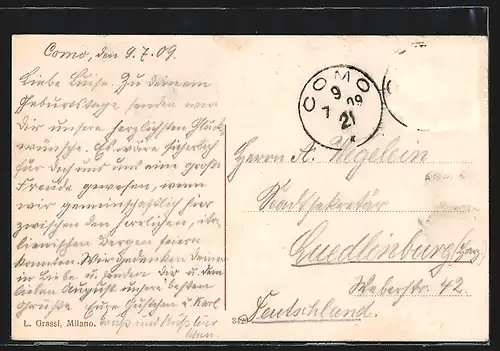 Como, den 9.7.09.
Liebe Luise. Zu deinem
Geburtstage senden wir
Dir unsere herzlichsten Glück
wünsche. Es wäre sicherlich
für Dich und uns eine große
Freude gewesen, wenn
wir gemeinschaftlich hier
zwischen den herrlichen, ita-
lienischen Bergen feiern
konnten. Wir gedenken Deiner
in Liebe u. senden Dir u. dem
lieben August unsere besten
Grüße. Eure u. Karl
L. Grassi, Milano.
COMO
9
7 09
21
Herrn A. Wegelein
Stadtsekretär
Quedlinburg (Harz)
Weberstr. 42.
Deutschland.